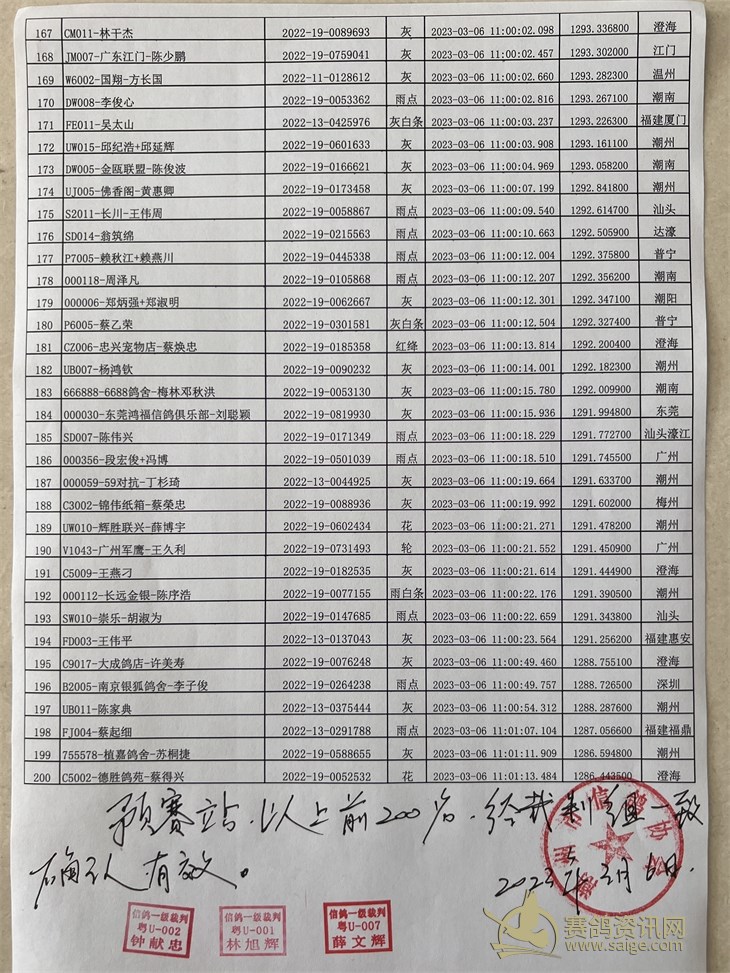 167 CM011-林干杰 2022-19-0089693 灰 2023-03-06 11:00:02.098 1293.336800 澄海
168 JM007-广东江门-陈少鹏 2022-19-0759041 灰 2023-03-06 11:00:02.457 1293.302000 江门
169 W6002-国翔-方长国 2022-11-0128612 灰 2023-03-06 11:00:02.660 1293.282300 温州
170 DW008-李俊心 2022-19-0053362 雨点 2023-03-06 11:00:02.816 1293.267100 潮南
171 FE011-吴太山 2022-13-0425976 灰白条 2023-03-06 11:00:03.237 1293.226300 福建厦门
172 UW015-邱纪浩+邱延辉 2022-19-0601633 灰 2023-03-06 11:00:03.908 1293.161100 潮州
173 DW005-金瓯联盟-陈俊波 2022-19-0166621 灰 2023-03-06 11:00:04.969 1293.058200 潮南
174 UJ005-佛香阁-黄惠卿 2022-19-0173458 灰 2023-03-06 11:00:07.199 1292.841800 潮州
175 S2011-长川-王伟周 2022-19-0058867 雨点 2023-03-06 11:00:09.540 1292.614700 汕头
176 SD014-翁筑绵 2022-19-0215563 雨点 2023-03-06 11:00:10.663 1292.505900 达濠
177 P7005-赖秋江+赖燕川 2022-19-0445338 雨点 2023-03-06 11:00:12.004 1292.375800 普宁
178 000118-周泽凡 2022-19-0105868 雨点 2023-03-06 11:00:12.207 1292.356200 潮南
179 000006-郑炳强+郑淑明 2022-19-0062667 灰 2023-03-06 11:00:12.301 1292.347100 潮阳
180 P6005-蔡乙荣 2022-19-0301581 灰白条 2023-03-06 11:00:12.504 1292.327400 普宁
181 CZ006-忠兴宠物店-蔡焕忠 2022-19-0185358 红绛 2023-03-06 11:00:13.814 1292.200400 澄海
182 UB007-杨鸿钦 2022-19-0090232 灰 2023-03-06 11:00:14.001 1292.182300 潮州
183 666888-6688鸽舍-梅林邓秋洪 2022-19-0053130 灰 2023-03-06 11:00:15.780 1292.009900 潮南
184 000030-东莞鸿福信鸽俱乐部-刘聪颖 2022-19-0819930 灰 2023-03-06 11:00:15.936 1291.994800 东莞
185 SD007-陈伟兴 2022-19-0171349 雨点 2023-03-06 11:00:18.229 1291.772700 汕头濠江
186 000356-段宏俊+冯博 2022-19-0501039 雨点 2023-03-06 11:00:18.510 1291.745500 广州
187 000059-59对抗-丁杉琦 2022-13-0044925 灰 2023-03-06 11:00:19.664 1291.633700 潮州
188 C3002-锦伟纸箱-蔡榮忠 2022-19-0088936 灰 2023-03-06 11:00:19.992 1291.602000 梅州
189 UW010-辉胜联兴-薛博宇 2022-19-0602434 花 2023-03-06 11:00:21.271 1291.478200 潮州
190 V1043-广州军鹰-王久利 2022-19-0731493 轮 2023-03-06 11:00:21.552 1291.450900 广州
191 C5009-王燕刁 2022-19-0182535 灰 2023-03-06 11:00:21.614 1291.444900 澄海
192 000112-长远金银-陈序浩 2022-19-0077155 雨白条 2023-03-06 11:00:22.176 1291.390500 潮州
193 SW010-崇乐-胡淑为 2022-19-0147685 雨点 2023-03-06 11:00:22.659 1291.343800 汕头
194 FD003-王伟平 2022-13-0137043 灰 2023-03-06 11:00:23.564 1291.256200 福建惠安
195 C9017-大成鸽店-许美寿 2022-19-0076248 灰 2023-03-06 11:00:49.460 1288.755100 澄海
196 B2005-南京银狐鸽舍-李子俊 2022-19-0264238 雨点 2023-03-06 11:00:49.757 1288.726500 深圳
197 UB011-陈家典 2022-13-0375444 灰 2023-03-06 11:00:54.312 1288.287600 潮州
198 FJ004-蔡起细 2022-13-0291788 雨点 2023-03-06 11:01:07.104 1287.056600 福建福鼎
199 755578-植嘉鸽舍-苏桐捷 2022-19-0588655 灰 2023-03-06 11:01:11.909 1286.594800 潮州
200 C5002-德胜鸽苑-蔡得兴 2022-19-0052532 花 2023-03-06 11:01:13.484 1286.443500 澄海
预赛站.以上前200名.经裁判组一致
确认有效。
2023年3月6日.
信鸽一级裁判
粤U-002
钟献忠
信鸽一级裁判
粤U-001
林旭辉
信鸽一级裁判
粤U-007
薛文辉
赛鸽资讯网
www.saige.com